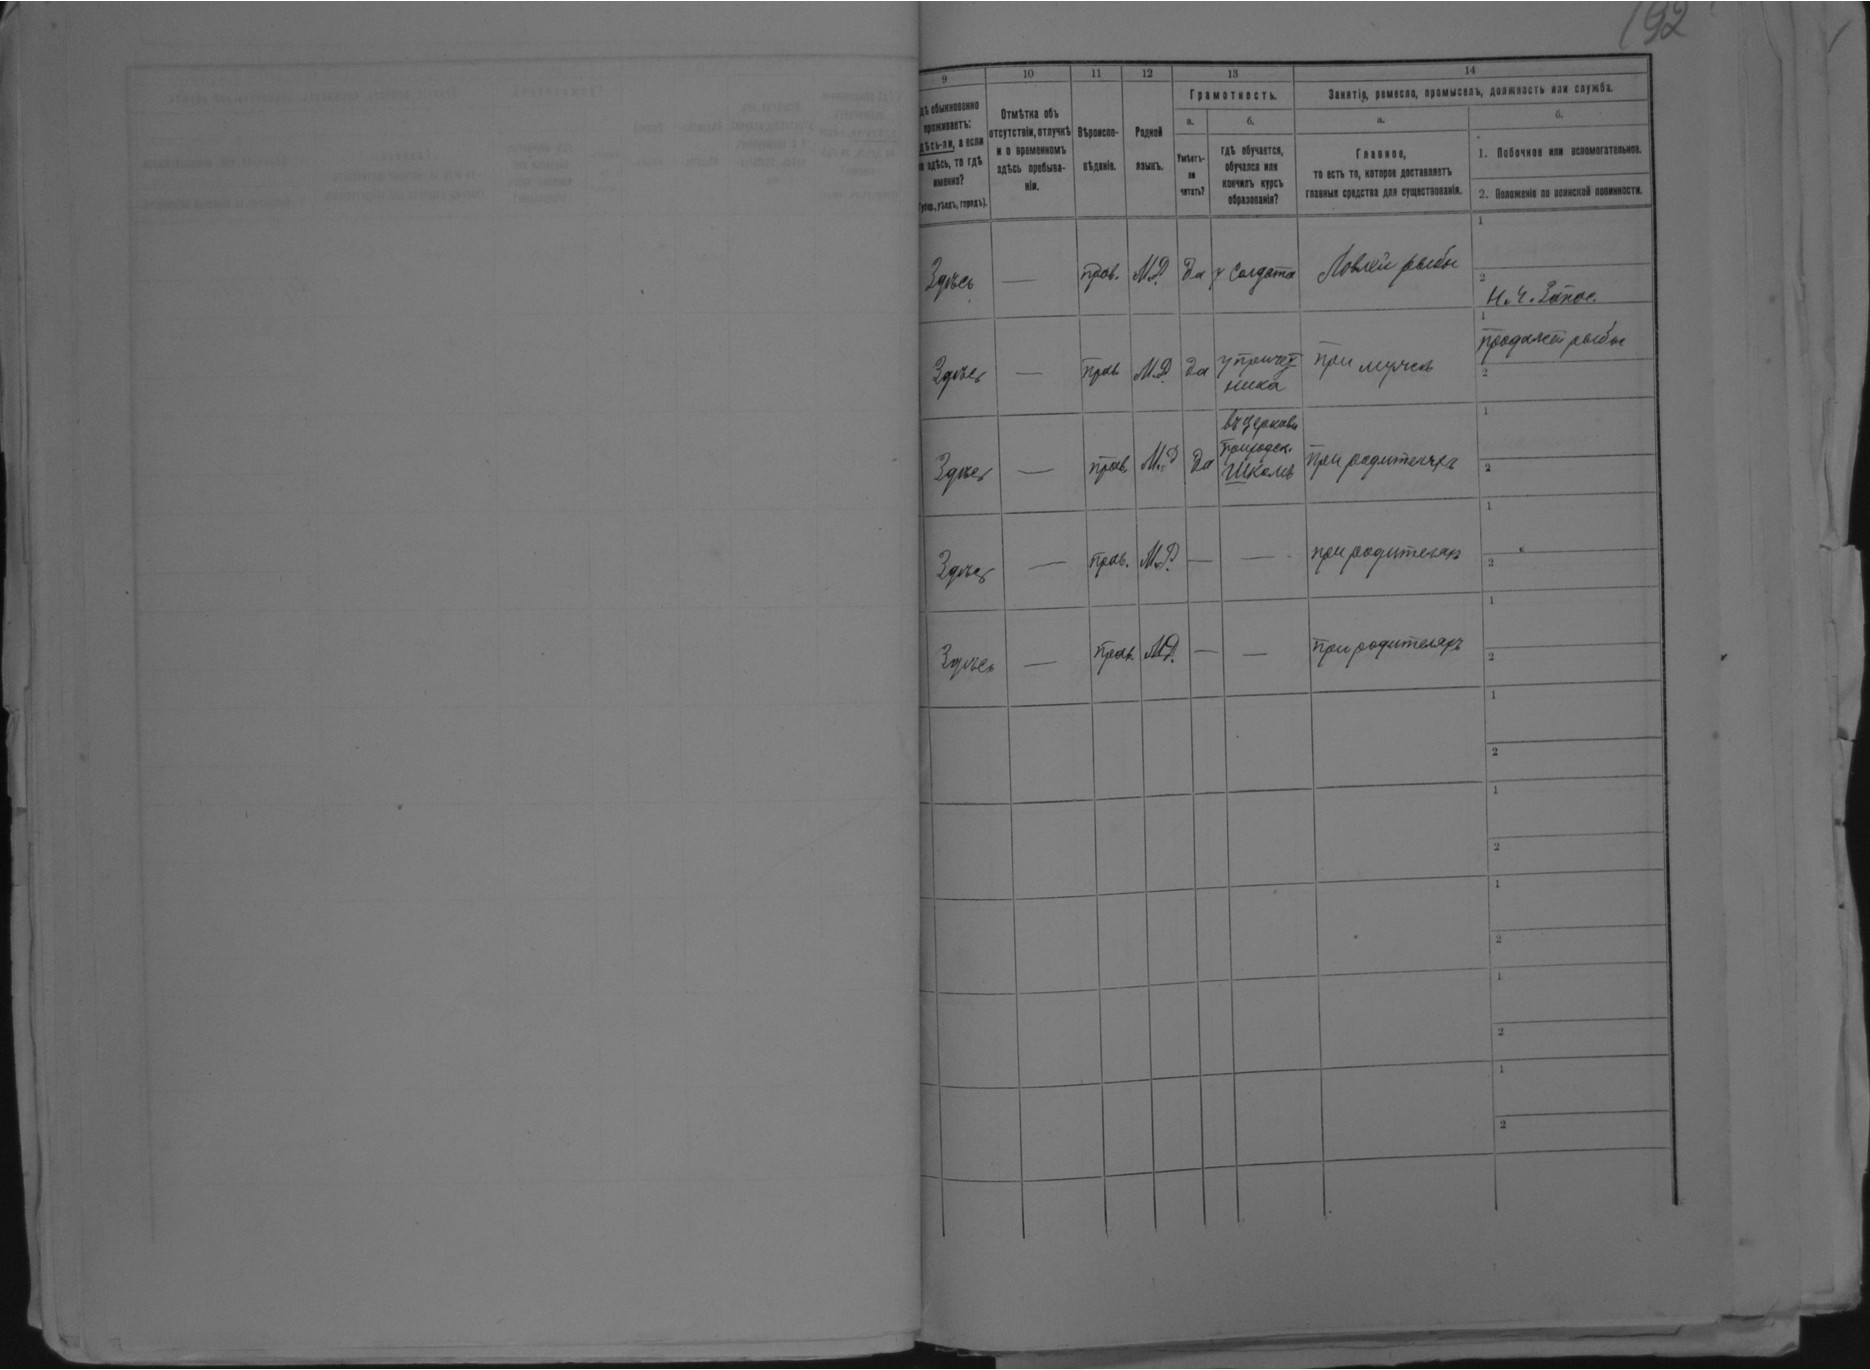 192
9 10 11 12 13 14
Грамотность.
Занятія, ремесло, промыселъ, должность или служба.
обыкновенно
проживаетъ:
здѣсь-ли, а если
не здѣсь, то гдѣ
именно?
(губер., уѣздъ, городъ).
Отмѣтка объ
отсутствіи, отлучкѣ
и о временномъ
здѣсь пребыва-
ніи.
Вѣроиспо-
вѣданіе.
Родной
языкъ.
а.
Умѣетъ-
ли
читать?
б.
гдѣ обучается,
обучался или
кончилъ курсъ
образованія?
а.
Главное,
то есть то, которое доставляетъ
главныя средства для существованія.
б.
1. Побочное или вспомогательное.
2. Положеніе по воинской повинности.
1
Здѣсь — прав. М.Д. Да у солдата Ловлей рыбы
2
Н. Ч. Запас.
1
продажей рыбы
Здѣсь — прав М.Д. Да у причет
ника
При мужѣ
2
1
Здѣсь — прав М.Д Да
въ церковн
приходск.
Школѣ
При родителяхъ
2
1
Здѣсь — прав. М.Д. — — при родителях
2
1
Здѣсь — прав. М.Д. — — при родителяхъ
2
1
2
1
2
1
2
1
2
1
2